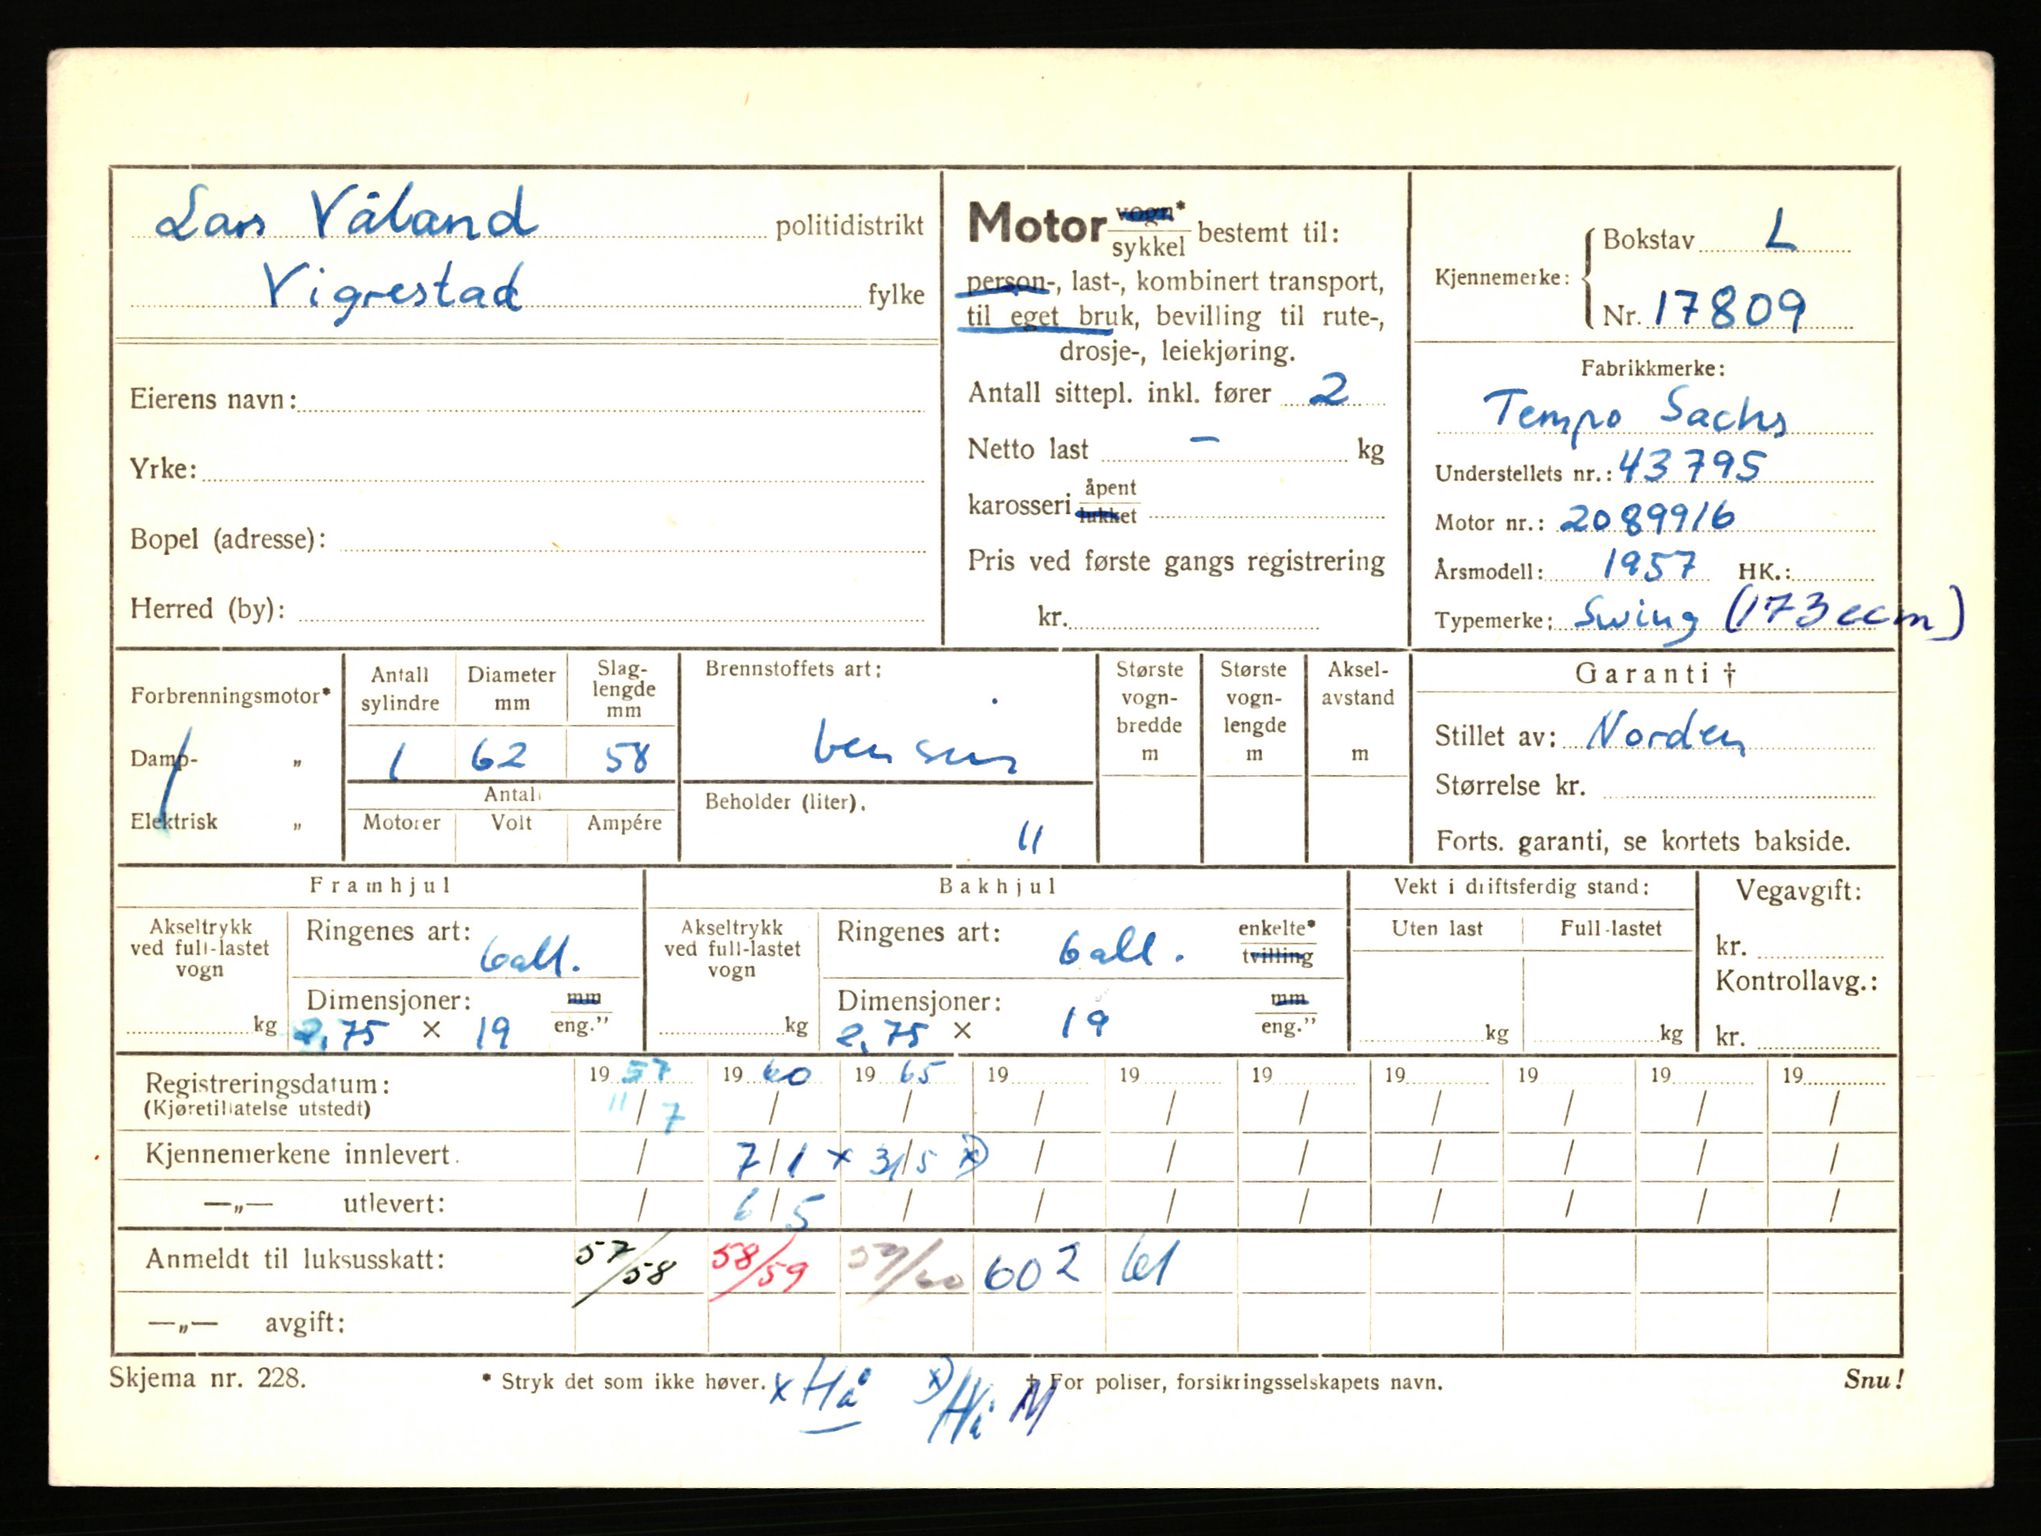 Lars Våland politidistrikt
Vigrestad fylke
Eierens navn:
Yrke:
Bopel (adresse):
Herred (by):
Motor vogn* sykkel bestemt til:
person-, last-, kombinert transport,
til eget bruk, bevilling til rute-,
drosje-, leiekjøring.
Antall sittepl. inkl. fører 2
Netto last – kg
karosseri åpent lukket
Pris ved første gangs registrering
kr.
Kjennemerke: { Bokstav L
Nr. 17809
Fabrikkmerke:
Tempo Sachs
Understellets nr.: 43795
Motor nr.: 2089916
Årsmodell: 1957 HK.:
Typemerke: Swing (173 ccm)
Forbrenningsmotor*
Damp- „
Elektrisk „
Antall sylindre
Diameter mm
Slag-lengde mm
1 62 58
Antall
Motorer Volt Ampére
Brennstoffets art:
bensin
Beholder (liter).
11
Største vogn-bredde m
Største vogn-lengde m
Aksel-avstand m
Garanti †
Stillet av: Norden
Størrelse kr.
Forts. garanti, se kortets bakside.
Framhjul
Akseltrykk ved full-lastet vogn
kg
Ringenes art: ball.
Dimensjoner: mm
2,75 × 19 eng.”
Bakhjul
Akseltrykk ved full-lastet vogn
kg
Ringenes art: ball. enkelte* tvilling
Dimensjoner: mm
2,75 × 19 eng.”
Vekt i driftsferdig stand:
Uten last Full-lastet
kg kg
Vegavgift:
kr.
Kontrollavg.:
kr.
Registreringsdatum: 19 57 19 60 19 65 19 19 19 19 19 19 19
(Kjøretillatelse utstedt) 11/7 / / / / / / / / /
Kjennemerkene innlevert. / 7/1 x 31/5 x) / / / / / / /
—„— utlevert: / 6/5 / / / / / / / /
Anmeldt til luksusskatt: 57/58 58/59 59/60 602 61
—„— avgift:
Skjema nr. 228. * Stryk det som ikke høver. † For poliser, forsikringsselskapets navn. Snu!
x Hå x) Hå M